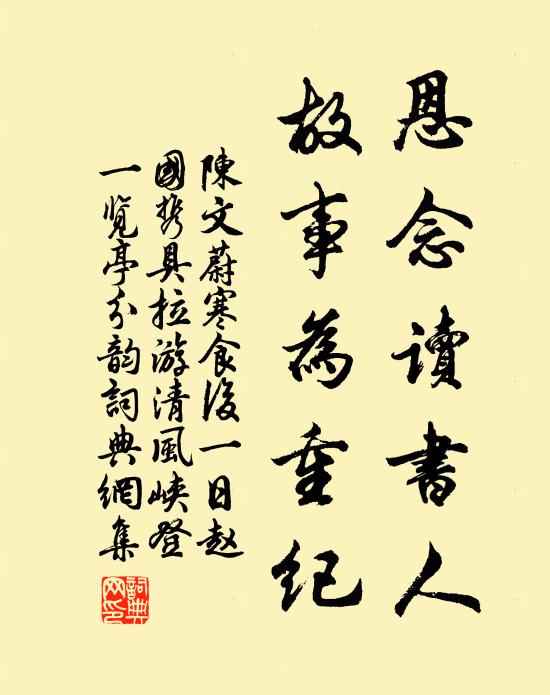 恩念讀書人
故事為重紀
陳文蔚寒食後一日趙
國携具拉游清風峽登
一覽亭分韵詞典網集
詞典网印